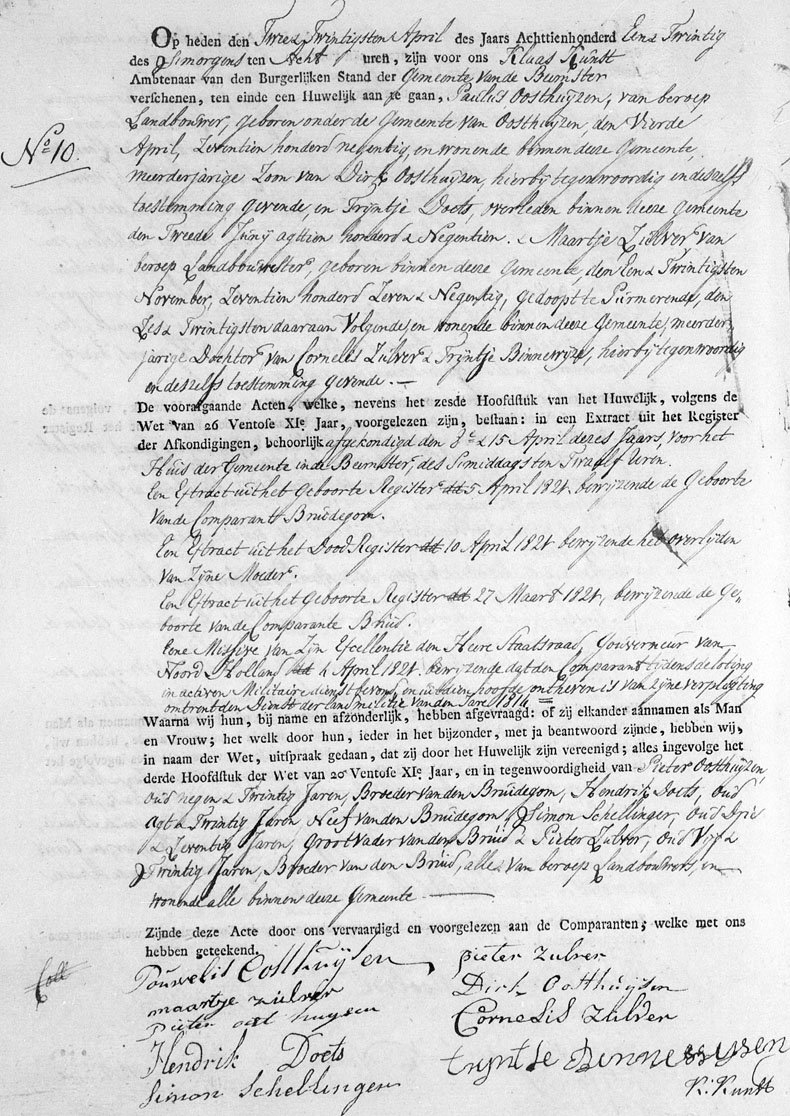 Op heden den Twee & Twintigsten April des Jaars Achttienhonderd Een & Twintig
des Smorgens ten Acht uren, zijn voor ons Klaas Kunst
Ambtenaar van den Burgerlijken Stand der Gemeente van de Beemster
verschenen, ten einde een Huwelijk aan te gaan, Paulus Oosthuijzen, van beroep
Landbouwer, geboren onder de Gemeente van Oosthuijzen, den Vierde
No. 10.
April, Zeventien honderd negentig, en wonende binnen deze Gemeente,
meerderjarige Zoon van Dirk Oosthuijzen, hierbij tegenwoordig en deszelfs
toestemming gevende, en Trijntje Doets, overleden binnen deeze Gemeente
den Tweede Junij agttien honderd & Negentien. & Maartje Zulver van
beroep Landbouwster, geboren binnen deeze Gemeente den Een & Twintigsten
November, Zeventien honderd Zeven & Negentig, gedoopt te Purmerende, den
Zes & Twintigsten daaraan Volgende, en wonende binnen deeze Gemeente, meerder-
jarige Dochter van Cornelis Zulver & Trijntje Binnewijze, hierbij tegenwoordig
en deszelfs toestemming gevende.
De voorafgaande Acten, welke, nevens het zesde Hoofdstuk van het Huwelijk, volgens de
Wet van 26 Ventose XIe. Jaar, voorgelezen zijn, bestaan: in een Extract uit het Register
der Afkondigingen, behoorlijk afgekondigd den 8e & 15 April dezes Jaars, voor het
Huis der Gemeente in de Beemster, des Smiddags ten Twaalf Uren.
Een Extract uit het Geboorte Register dd 5 April 1821. bewijzende de Geboorte
van de Comparant Bruidegom.
Een Extract uit het Dood Register dd 10 April 1821 bewijzende het overlijden
van Zijne Moeder.
Een Extract uit het Geboorte Register dd 27 Maart 1821, bewijzende de Ge-
boorte van de Comparante Bruid.
Eene Missive van Zijn Excellentie den Heere Staatsraad, Gouverneur van
Noord Holland dd 4 April 1821. bewijzende dat den Comparant tijdens de loting
in activen Militaire dienst bevond, en uit dien hoofde ontheven is van zijne verplagting
omtrent den Dienst der land militie van den Jare 1814
Waarna wij hun, bij name en afzonderlijk, hebben afgevraagd: of zij elkander aannamen als Man
en Vrouw; het welk door hun, ieder in het bijzonder, met ja beantwoord zijnde, hebben wij,
in naam der Wet, uitspraak gedaan, dat zij door het Huwelijk zijn vereenigd; alles ingevolge het
derde Hoofdstuk der Wet van 20 Ventose XIe. Jaar, en in tegenwoordigheid van Pieter Oosthuijzen,
oud negen & Twintig Jaren, Broeder van den Bruidegom, Hendrik Doets, oud
agt & Twintig Jaren Neef van den Bruidegom, Simon Schellinger, oud Drie
& Zeventig Jaren, Groot Vader van den Bruid & Pieter Zulver, oud Vijf &
Twintig Jaren, Broeder van den Bruid, alle van beroep Landbouwers, en
wonende alle binnen deeze Gemeente
Zijnde deze Acte door ons vervaardigd en voorgelezen aan de Comparanten, welke met ons
hebben geteekend.
Pouwelis Oosthuijzen
pieter zulver
maartje zulver
Dirk Oosthuijsen
Pieter oosthuysen
Cornelis Zulver
Hendrik Doets
trijntje Binnewijsen
Simon Schellinger
K: Kunst